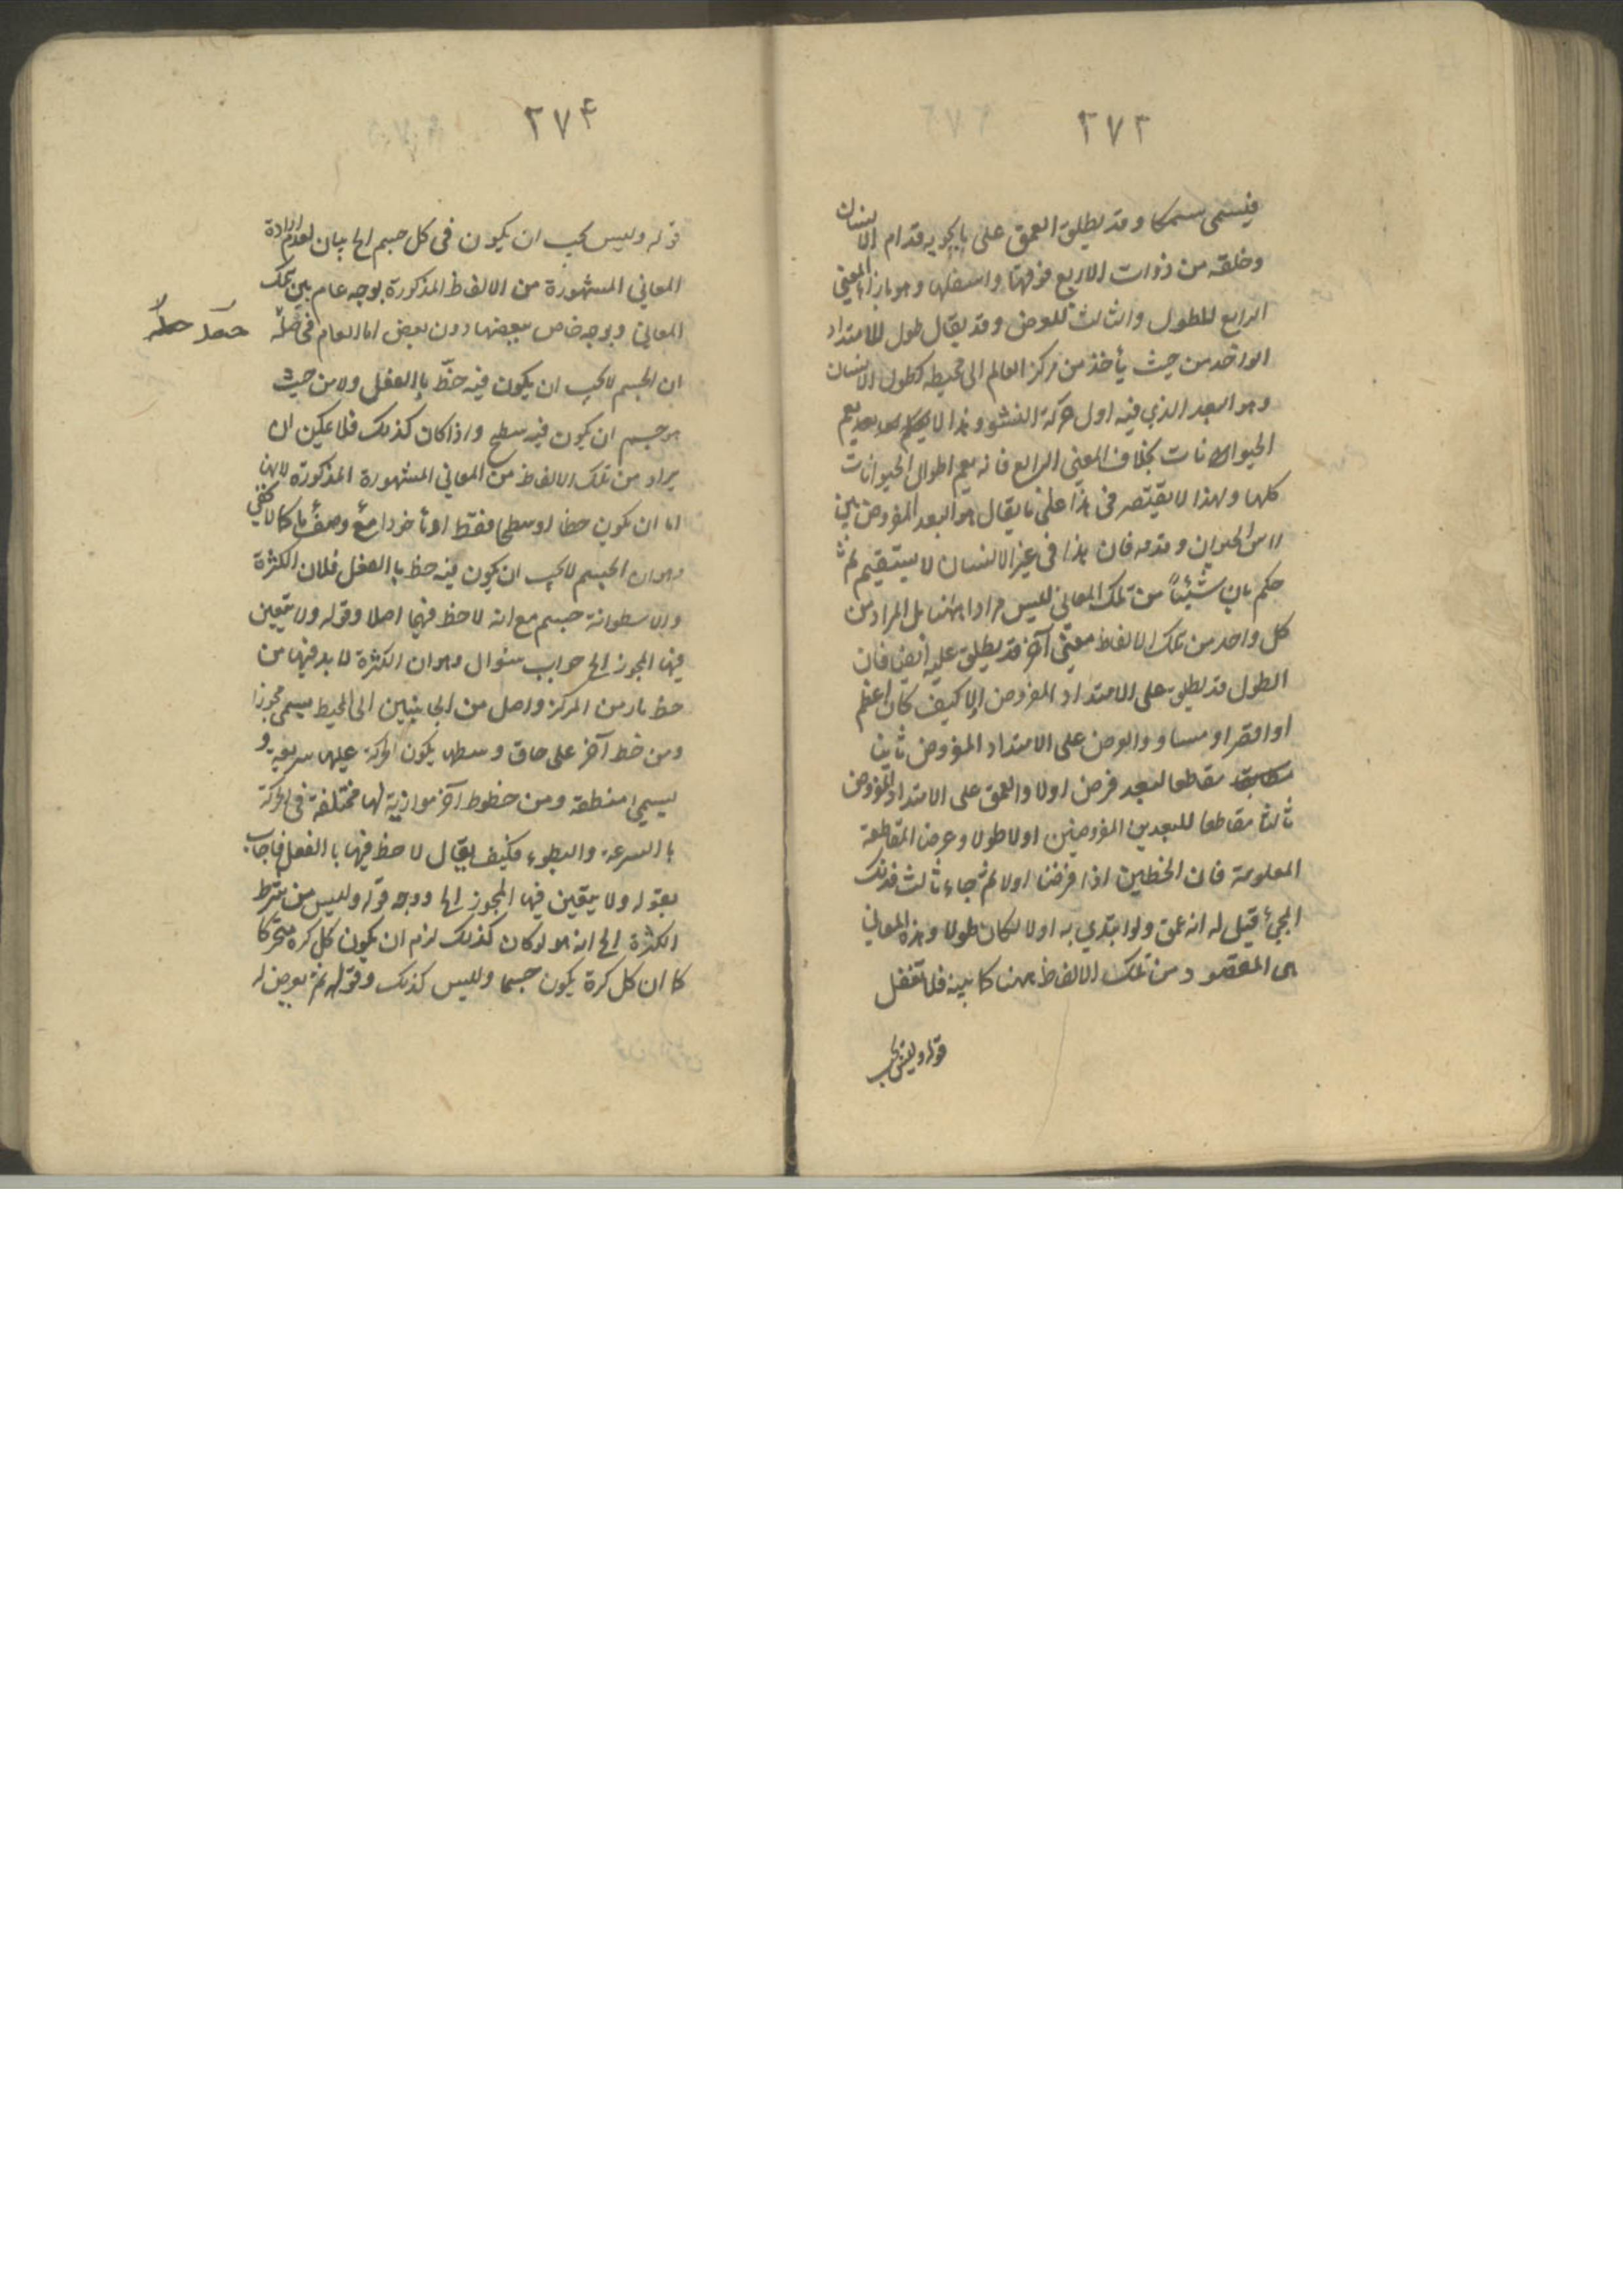 ٢٧٣
فيسمى سمكا وقد يطلق العمق على ما يحويه قدام الانسان
وخلفه من ذوات الاربع فوقها واسفلها وهو بازاء المعنى
الرابع للطول والثالث للعرض وقد يقال طول للامتداد
الواحد من حيث يأخذ من مركز العالم الى محيطه كطول الانسان
وهو البعد الذي فيه اول حركة النشو وهذا لا يعم
الحيوانات بخلاف المعنى الرابع فانه يعم اطوال الحيوانات
كلها ولهذا لا يقتصر في هذا على ما يقال هو البعد المفروض بين
راس الحيوان وقدمه فان هذا في غير الانسان لا يستقيم ثم
حكم بان شيئاً من تلك المعاني ليس مرادا ههنا بل المراد من
كل واحد من تلك الالفاظ معنى آخر قد يطلق عليه ايضا فان
الطول قد يطلق على الامتداد المفروض اولا كيف كان اعظم
او اقصر او مساو والعرض على الامتداد المفروض ثانيا
مقاطعا لبعد فرض اولا والعمق على الامتداد المفروض
ثالثا مقاطعا للبعدين المفروضين اولا طولا وعرضا المقاطعة
المعلومة فان الخطين اذا فرضنا اولا ثم جاء ثالث فذلك
المجيء قيل له انه عمق ولو ابتدي به اولا لكان طولا وهذه المعاني
هي المقصود من تلك الالفاظ ههنا كما بينه فلا تغفل
قوله وليس يجب
٢٧۴
قوله وليس يجب ان يكون في كل جسم الخ بيان لعدم ارادة
المعاني المشهورة من الالفاظ المذكورة بوجه عام بين تلك
المعاني وبوجه خاص ببعضها دون بعض اما العام
ان الجسم لا يجب ان يكون فيه خطّ بالفعل ولا من حيث
هو جسم ان يكون فيه سطح واذا كان كذلك فلا يمكن ان
يراد من تلك الالفاظ من المعاني المشهورة المذكورة لانها
اما ان يكون خطا او سطحا فقط او مأخوذا مع وصف ما كما لا يخفى
وهو ان الجسم لا يجب ان يكون فيه خط بالفعل فلان الكرة
والاسطوانة جسم مع انه لا خط فيها اصلا وقوله ولا يتعين
فيها المحور الخ جواب سئوال وهو ان الكرة لا بد فيها من
خط مار من المركز واصل من الجانبين الى المحيط يسمى محورا
ومن خط آخر على حاق وسطها يكون الحركة عليها سريعة و
يسمى منطقة ومن خطوط آخر موازية لها مختلفة في الحركة
بالسرعة والبطوء فكيف يقال لا خط فيها بالفعل فاجاب
بقوله ولا يتعين فيها المحور الخ ووجه قوله وليس من شرط
الكرة الخ انه لو كان كذلك لزم ان يكون كل كرة متحركا
كما ان كل كرة يكون جسما وليس كذلك وقوله ثم يعرض له